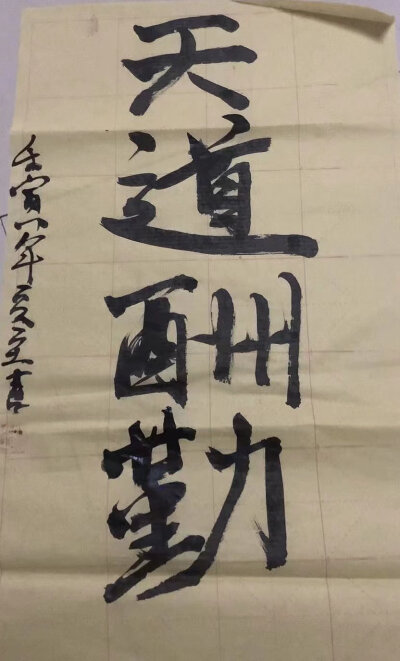 天道酬勤
壬寅年夏至書